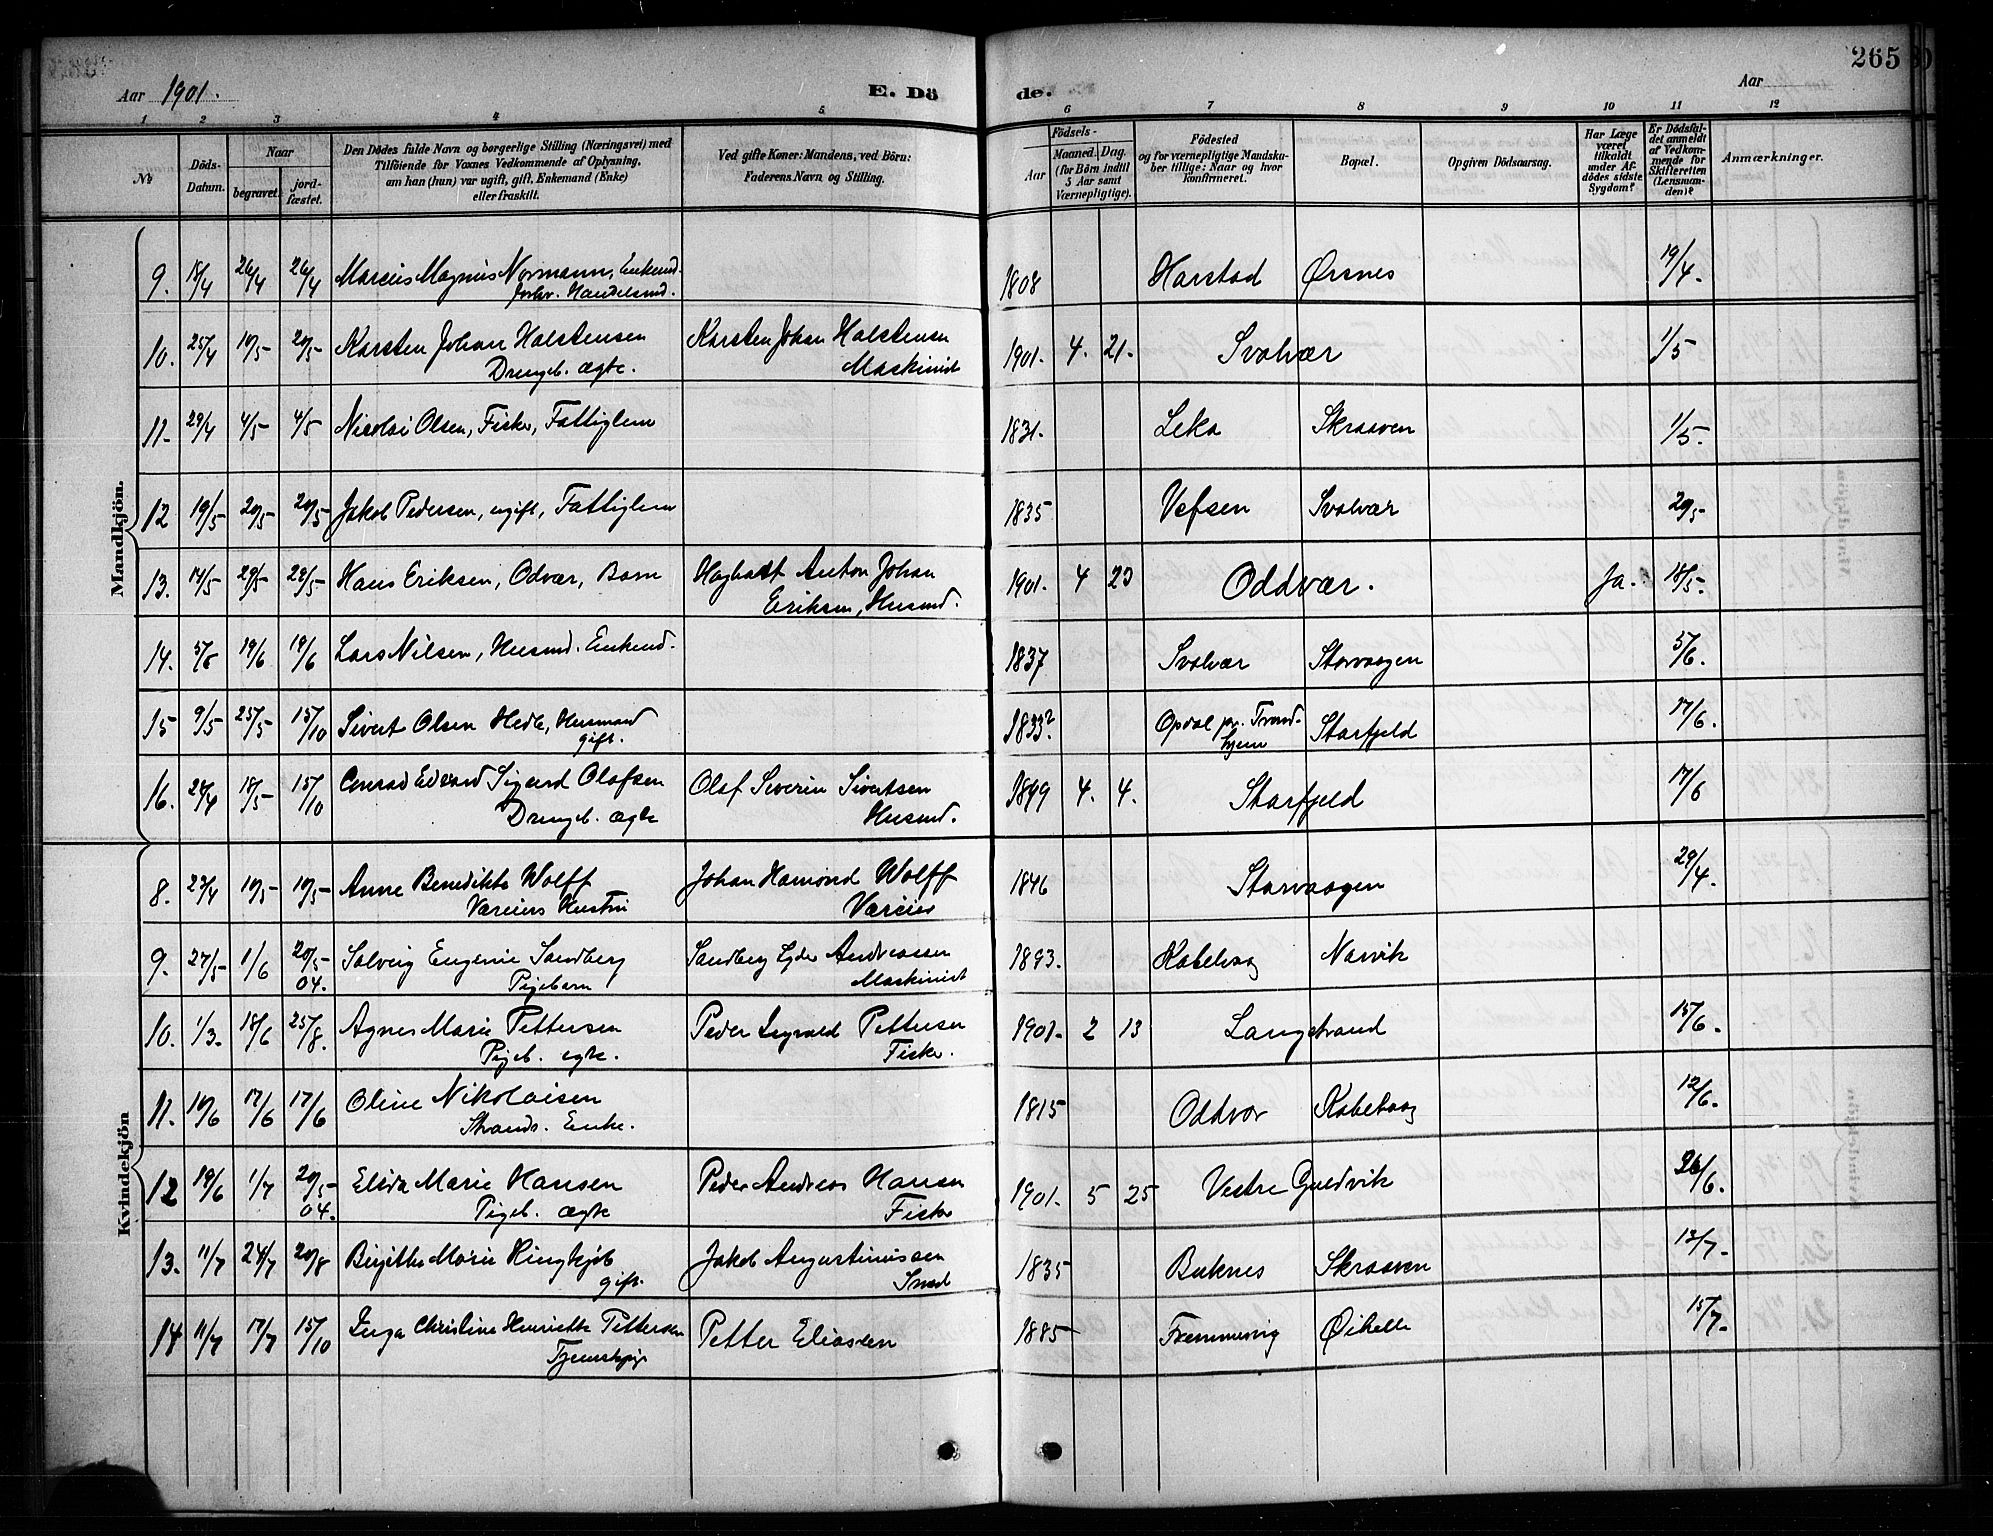 265
Aar 1901.
E. Dö
de.
Aar
1 2 3 4 5 6 7 8 9 10 11 12
№
Döds-Datum.
Naar
begravet.
jord-fæstet.
Den Dödes fulde Navn og borgerlige Stilling (Næringsvei) med
Tilföiende for Voxnes Vedkommende af Oplysning,
om han (hun) var ugift, gift, Enkemand (Enke)
eller fraskilt.
Ved gifte Koner: Mandens, ved Börn:
Faderens Navn og Stilling.
Födsels-
Aar
Maaned. Dag.
(for Börn indtil
5 Aar samt
Værnepligtige).
Födested
og for værnepligtige Mandska-
ber tillige: Naar og hvor
konfirmeret.
Bopæl.
Opgiven Dödsaarsag.
Har Læge
været
tilkaldt
under Af-
dödes sidste
Sygdom?
Er Dödsfal-
det anmeldt
af Vedkom-
mende for
Skifteretten
(Lensman-
den)?
Anmærkninger.
Mandkjön.
9. 18/4 26/4 26/4 Marcus Magnus Normann, Enkemd. 1808 Harstad Ørsnes 19/4.
forhv. Handelsmd.
10. 25/4 10/5 20/5 Karsten Johan Halstensen Karsten Johan Halstensen 1901. 4. 21. Svolvær 1/5
Drengeb. ægte. Maskinist
11. 29/4 4/5 4/5 Nicolai Olsen, Fisker, Fattiglem 1831. Leka Skraaven 1/5.
12 19/5 20/5 20/5 Jakob Pedersen, ugift, Fattiglem 1835 Vefsen Svolvær 20/5
13. 14/5 29/5 29/5 Hans Eriksen, Odvær, Barn Hagbart Anton Johan 1901. 4 23 Oddvær. Ja. 18/5.
Eriksen, Husmd.
14. 5/6 19/6 19/6 Lars Nilsen, Husmd. Enkemd. 1837 Svolvær Storvaagen 5/6.
15 9/5 25/5 15/10 Sivert Olsen Hedle, Husmand 1833? Opdal pr. Trond-hjem Storfjeld 17/6.
gift.
16. 24/4 18/5 15/10 Conrad Edvard Sigurd Olafsen Olaf Severin Sivertsen 1899 4. 4. Storfjeld 17/6
Drengeb. ægte Husmd.
Kvindekjön
8. 23/4 10/5 10/5 Anne Benedikte Wolff Johan Hamond Wolff 1846 Storvaagen 29/4.
Væreiers Hustru Væreier
9. 27/5 1/6 20/5 04. Solveig Eugenie Sandberg Sandberg Eyder Andreassen 1893. Kabelvaag Narvik
Pigebarn Maskinist
10. 1/3. 18/6 25/8. Agnes Marie Pettersen Peder Sigvald Pettersen 1901. 2 13 Langstrand 15/6.
Pigeb. egte. Fisker.
11. 10/6 17/6 17/6 Oline Nikolaisen 1815 Oddvær Kabelvaag 12/6.
Strands. Enke.
12 19/6 1/7 20/5 04. Elida Marie Hansen Peder Andreas Hansen 1901. 5 25 Vestre Guldvik 26/6.
Pigeb. ægte Fisker
13. 11/7 24/7 20/8 Birgitte Marie Ringkjøb Jakob Augustinussen 1835 Buknes Skraaven 12/7.
gift. Smed
14 11/7 17/7 15/10 Inga Christine Henriette Pettersen Petter Eliassen 1885 Fremmervig Øihelle 15/7.
Tjenestepige